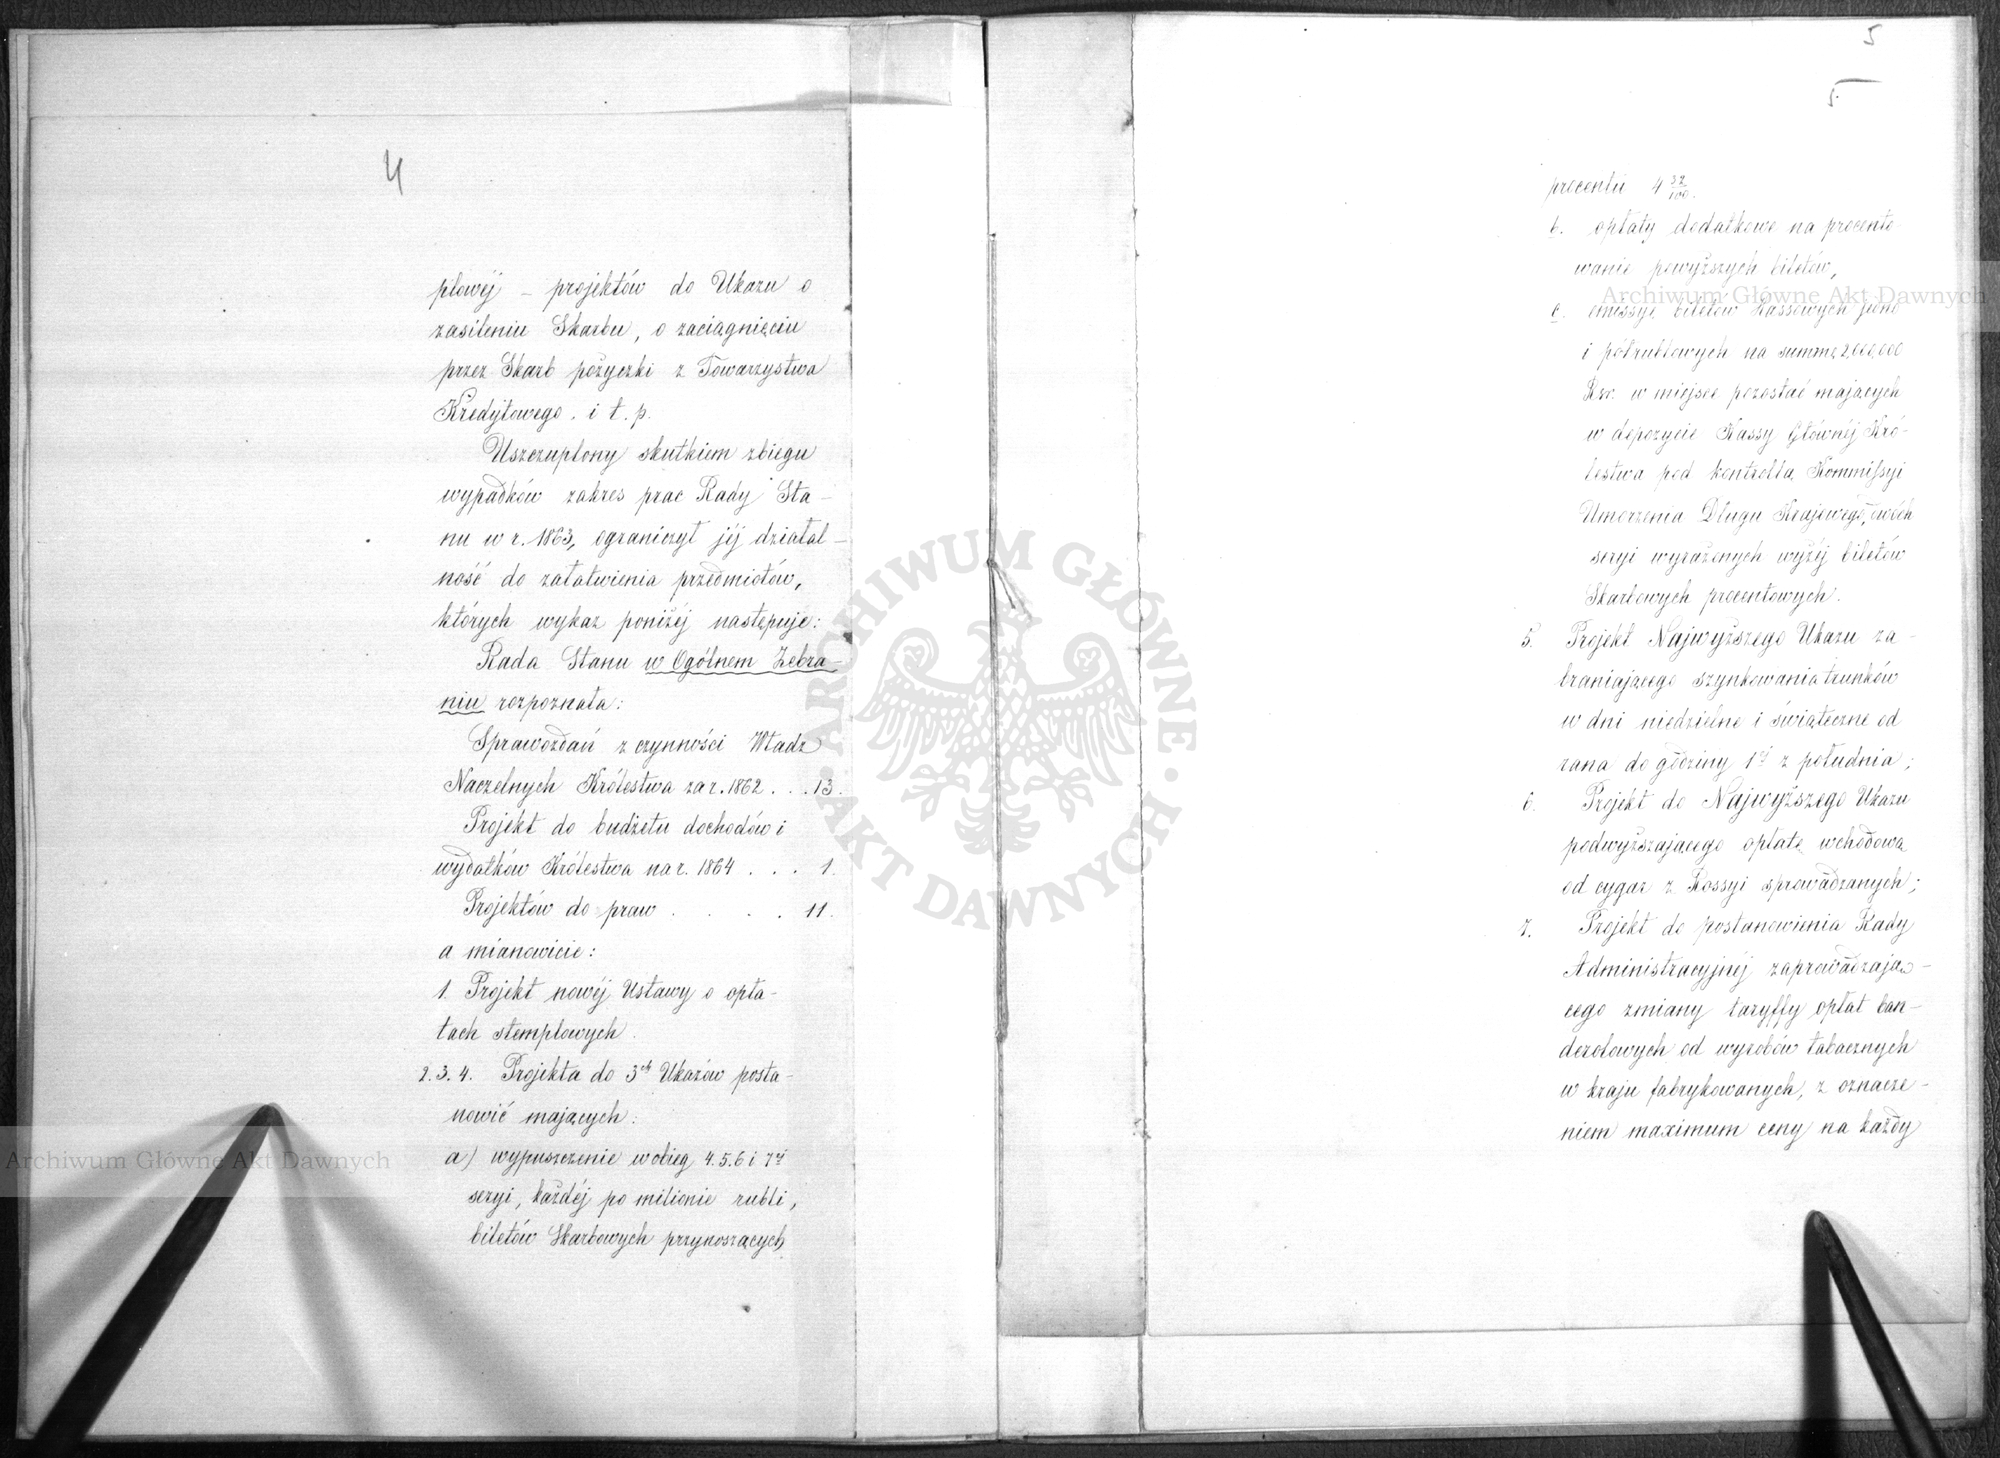 4
plowéj – projektów do Ukazu o
zasileniu Skarbu, o zaciągnięciu
przez Skarb pożyczki z Towarzystwa
Kredytowego. i t. p.
Uszczuplony skutkiem zbiegu
wypadków zakres prac Rady Sta-
nu w r. 1863, ograniczył jéj działal-
ność do załatwienia przedmiotów,
których wykaz poniżéj następuje:
Rada Stanu w Ogólnem Zebra-
niu rozpoznała:
Sprawozdań z czynności Władz
Naczelnych Królestwa za r. 1862 . . . 13.
Projekt do budżetu dochodów i
wydatków Królestwa na r. 1864 . . . 1.
Projektów do praw . . . . 11.
a mianowicie:
1. Projekt nowéj Ustawy o opła-
tach stemplowych.
2. 3. 4. Projekta do 3ch Ukazów posta-
nowić mających:
a) wypuszczenie w obieg 4. 5. 6 i 7éj
seryi, każdéj po milionie rubli,
biletów Skarbowych przynoszących
5
5.
procentu 4 32/100.
b. opłaty dodatkowe na procento
wanie powyższych biletów,
c. emissyę biletów Kassowych jedno
i półrublowych na summę 2,000,000
Rsr. w miejsce pozostać mających
w depozycie Kassy Głównéj Kró-
lestwa pod kontrollą Kommissyi
Umorzenia Długu Krajowego, dwóch
seryi wyrażonych wyżéj biletów
Skarbowych procentowych.
5. Projekt Najwyższego Ukazu za-
braniającego szynkowania trunków
w dni niedzielne i świąteczne od
rana do godziny 1éj z południa;
6. Projekt do Najwyższego Ukazu
podwyższającego opłatę wchodową
od cygar z Rossyi sprowadzanych;
7. Projekt do postanowienia Rady
Administracyjnéj zaprowadzają-
cego zmiany taryffy opłat ban-
derolowych od wyrobów tabacznych
w kraju fabrykowanych, z oznacze-
niem maximum ceny na każdy
Archiwum Główne Akt Dawnych
Archiwum Główne Akt Dawnych
ARCHIWUM GŁÓWNE • AKT DAWNYCH •